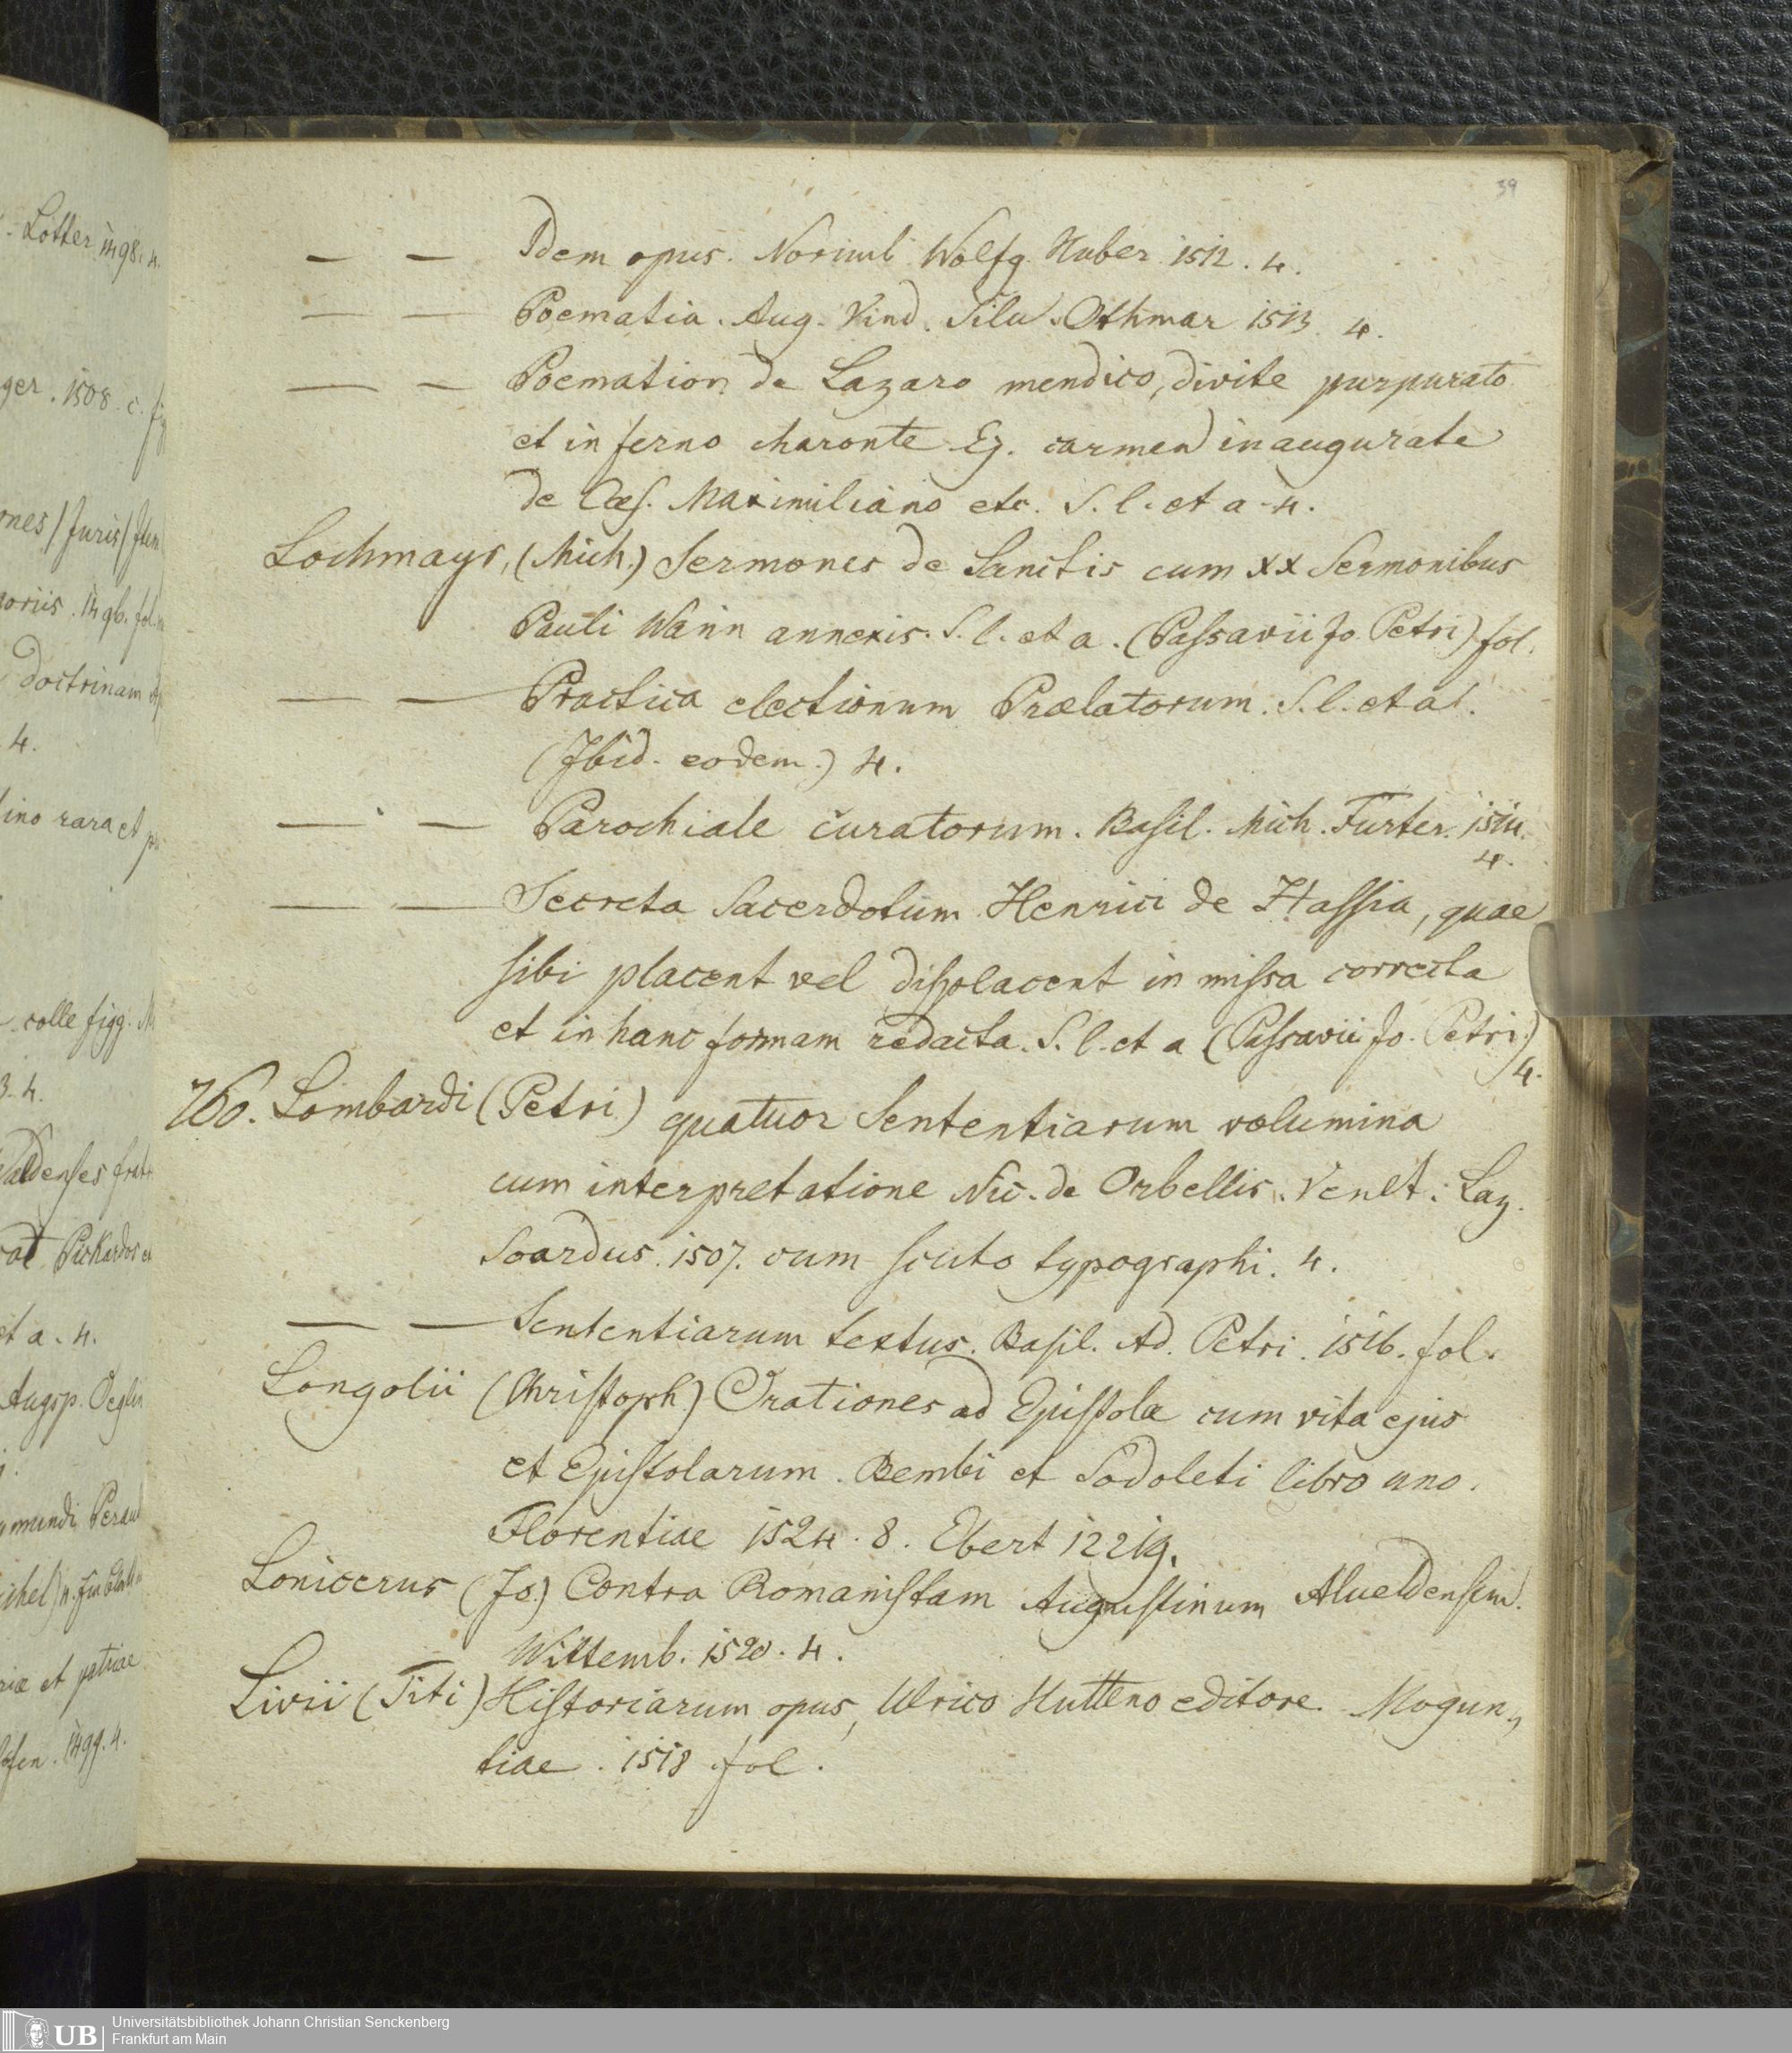 - Lotter 1498. 4.
ger. 1508. c. fig
nes / Juris /
oriis. 1496. fol.
Doctrinam
4.
ino rara et
colle figg.
3. 4.
aldenses frat
Pickardos et
et a. 4.
Augsp. Oeglin
mundi Perau
riæ et patriae
fen. 1499. 4.
39
— — Idem opus. Norimb Wolfg. Huber. 1512. 4.
— — Poematia. Aug. Vind. Silv. Othmar 1513. 4.
— — Poemation de Lazaro mendico, divite purpurato
et inferno charonte Ej. carmen inaugurate
de Cæs. Maximiliano etc. S. l. et a. 4.
Lochmayr, (Mich.) Sermones de Sanctis cum xx Sermonibus
Pauli Wann annexis. S. l. et a. (Passavii Jo. Petri) fol.
— — Practica electionum Prælatorum. S. l. et a.
(Ibid. eodem.) 4.
— — Parochiale curatorum. Basil. Mich. Furter. 1514.
4.
— — Secreta Sacerdotum Henrici de Hassia, quae
sibi placent vel displacent in missa correcta
et in hanc formam redacta. S. l. et a (Passavii Jo. Petri.)
4.
760. Lombardi (Petri) quatuor Sententiarum volumina
cum interpretatione Nic. de Orbellis. Venet. Laz.
Soardus. 1507. cum scuto typographi. 4.
— — Sententiarum textus. Basil. Ad. Petri. 1516. fol.
Longolii (Christoph.) Orationes ad Epistolæ cum vita ejus
et Epistolarum. Bembi et Sodoleti libro uno.
Florentiae 1524. 8. Ebert 12219.
Lonicerus (Jo.) Contra Romanistam Augustinum Alueldensem.
Wittemb. 1520. 4.
Livii (Titi) Historiarum opus, Ulrico Hutteno editore. Mogun,,
tiae. 1518 fol.
UB Universitätsbibliothek Johann Christian Senckenberg
Frankfurt am Main